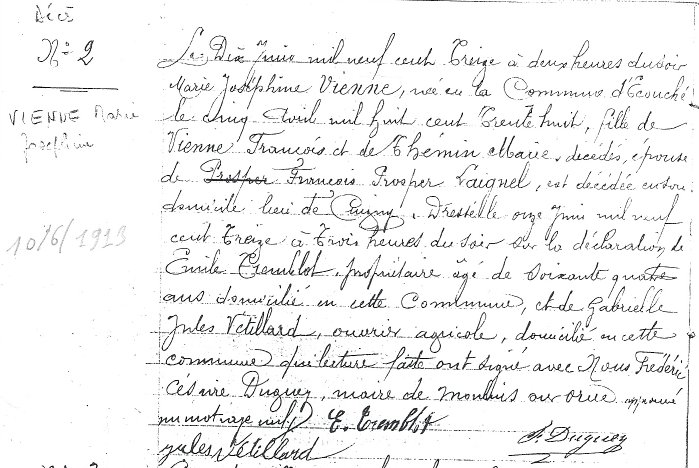 Décé
N° 2
VIENNE Marie
Joséphine
10/6/1913
Le Dix Juin mil neuf cent Treize à deux heures du soir
Marie Joséphine Vienne, née en la Commune d'Ecouché
le cinq Avril mil huit cent Trente huit, fille de
Vienne François et de Thémin Marie, décédés, épouse
de Prosper François Prosper Laignel, est décédée en son
domicile lieu de Cuigny. Dressé le onze Juin mil neuf
cent Treize à Trois heures du soir sur la déclaration de
Emile Tremblot, propriétaire âgé de Soixante quatre
ans domicilié en cette Commune, et de Gabrielle
Jules Vétillard, ouvrier agricole, domicilié en cette
commune qui lecture faite ont signé avec Nous Frédéric
Césaire Duguey, maire de montmis sur orne approuvé
un mot rayé nul E. Tremblot
Jules Vétillard F. Duguey